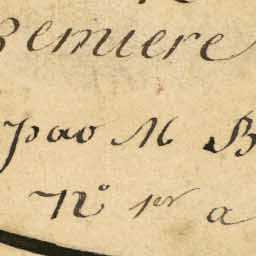 remiere
pao M B
N° 1er a